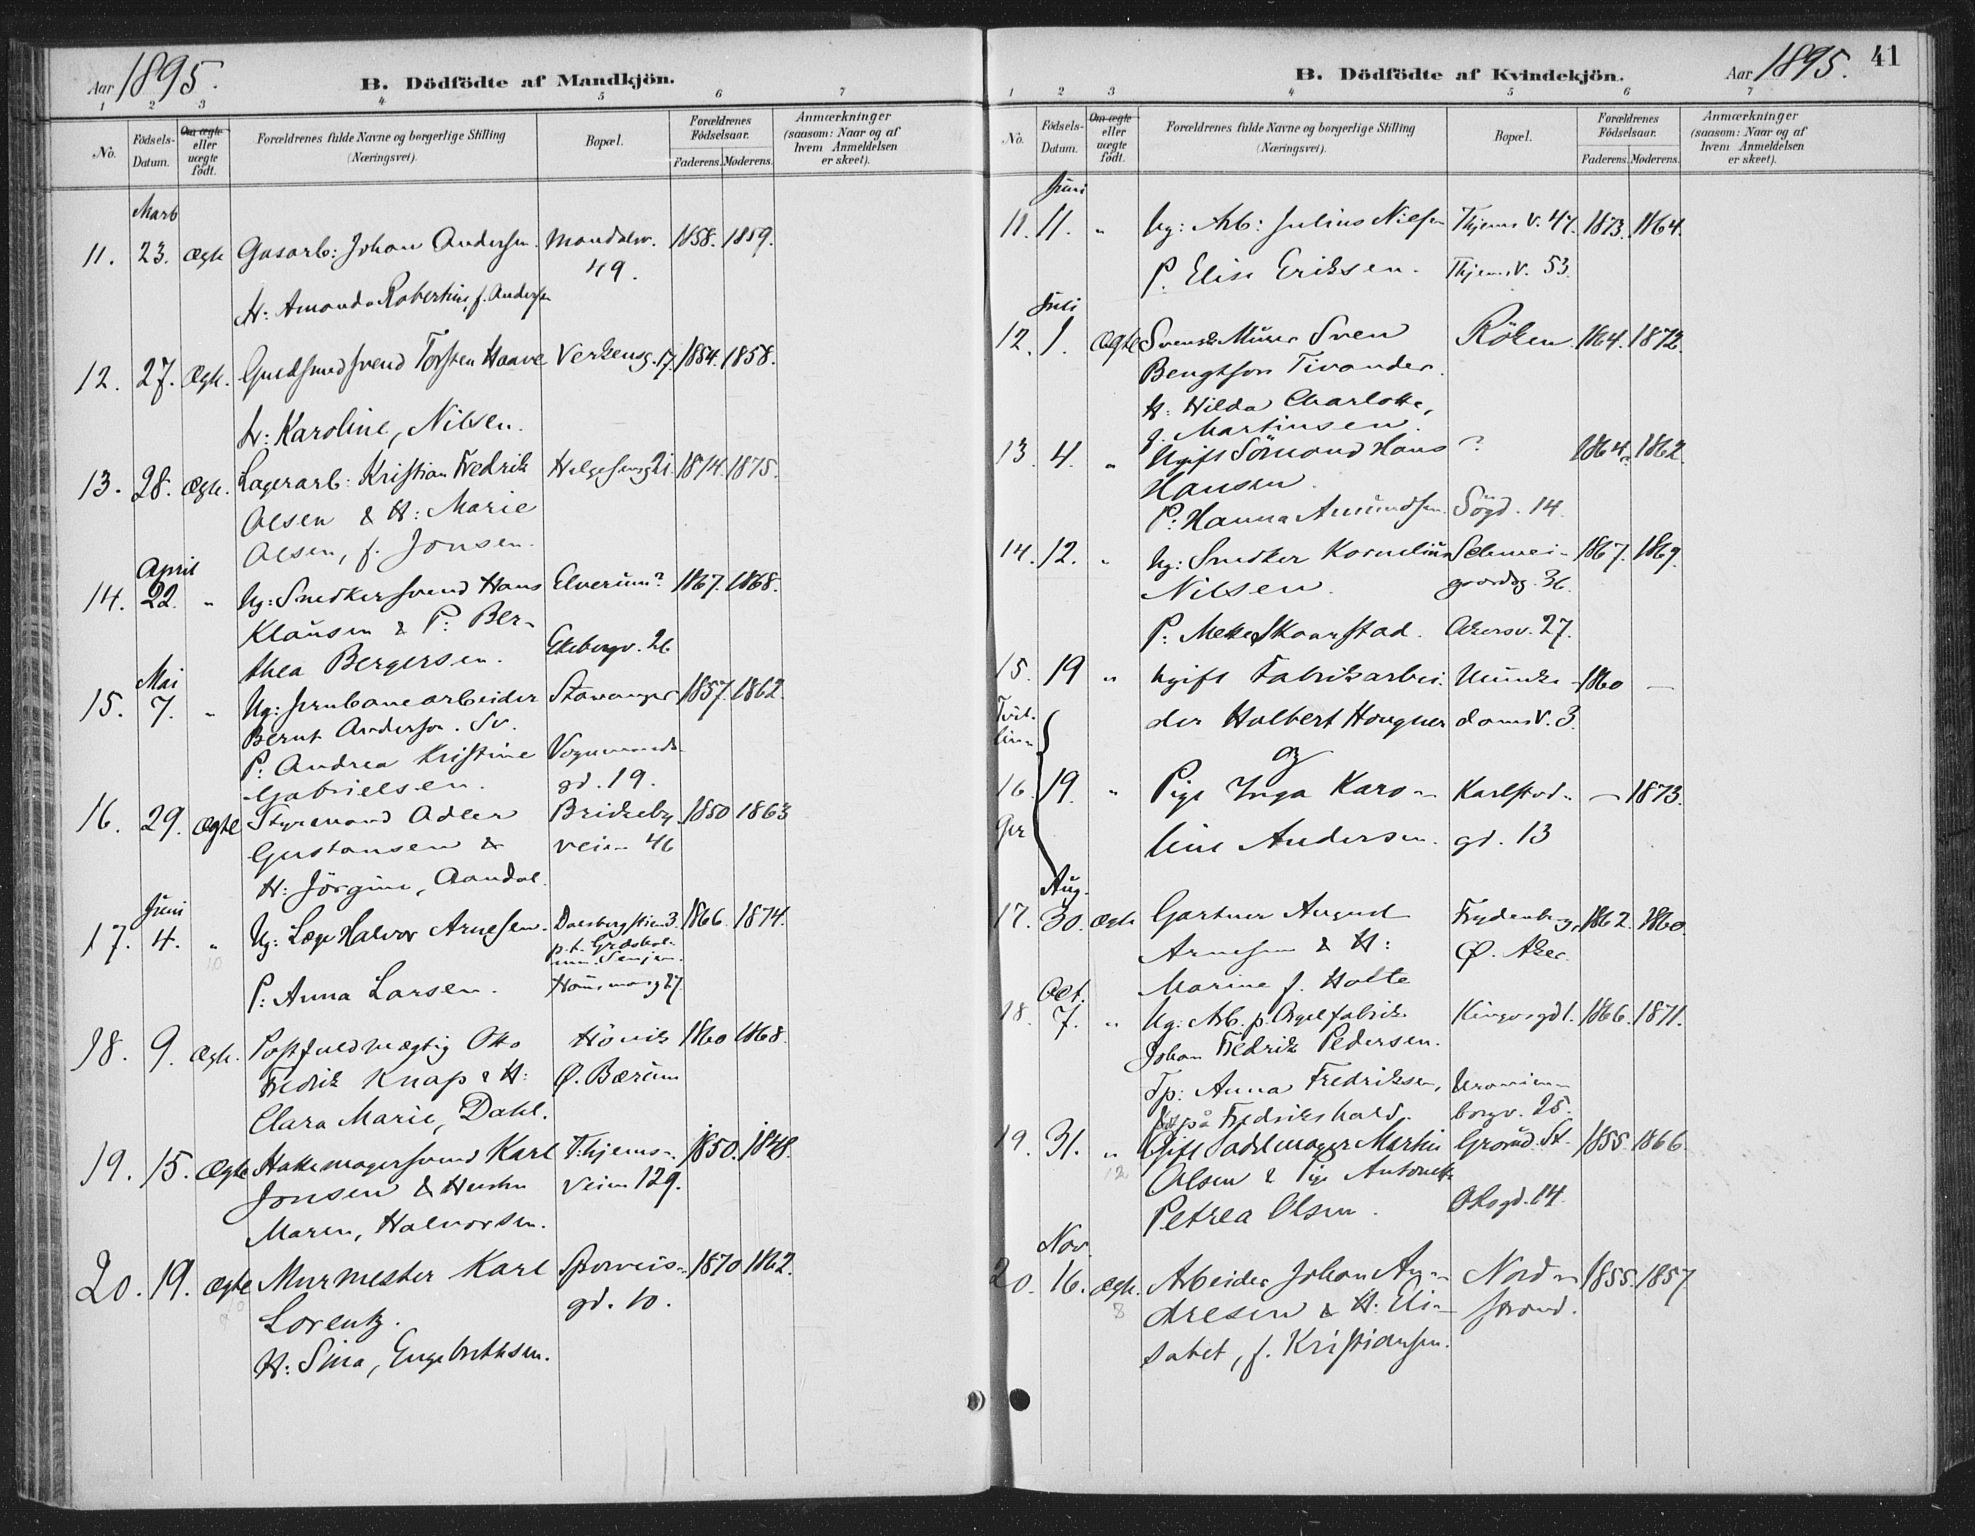 Aar 1895.
B. Dödfödte af Mandkjön.
1 2 3 4 5 6 7
No. Födsels-Datum. Om ægte eller uægte født. Forældrenes fulde Navne og borgerlige Stilling (Næringsvei). Bopæl. Forældrenes Fødselsaar. Faderens. Moderens. Anmærkninger (saasom: Naar og af hvem Anmeldelsen er skeet).
Marts
11. 23. Ægte Gasarb: Johan Andersen. Mandalsv. 1858. 1859.
49.
H: Amanda Robertine, f. Andersen
12. 27. Ægte. Guldsmedsvend Torsten Haave Verkensg. 17. 1854. 1858.
H: Karoline, Nilsen.
13. 28. Ægte. Lagerarb: Kristian Fredrik Helgesensg 21. 1874. 1875.
Olsen & H: Marie
Olsen, f. Jonsen.
April
14. 22. " Ug: Snedkersvend Hans Elverum? 1867. 1868.
Klausen & P: Ber-
thea Bergersen. Ekebergv. 26
Mai
15. 7. " Ug: Jernbanearbeider Stavanger 1857. 1862.
Bernt Anderson. Sv.
P: Andrea Kristine Vognmands-
Gabrielsen. gd. 19.
16. 29. Ægte Styrmand Adler Bridkeby 1850 1863
Gustansen & veien 46
H: Jörgine, Aandal.
Juni
17. 4. " Ug: Læge Halvor Arnesen. 3. 1866. 1874.
p.t.
Senjen.
P: Anna Larsen. Hausmansg 27
18. 9. Ægte. Postfuldmægtig Otto Hövik 1860 1868.
Fredrik Knap & H: Ø. Bærum
Clara Marie, Dahl.
19. 15. Ægte Hattemagersvend Karl Thjems- 1850. 1848.
Jonsen & Hustru veien 129.
Maren, Halvorsen.
20. 19. Ægte Murmester Karl Sporveis- 1870 1862.
Lorentz. gd. 10.
H: Sina, Engebrethsen.
41
B. Dödfödte af Kvindekjön.
Aar 1895.
1 2 3 4 5 6 7
No. Födsels-Datum. Om ægte eller uægte födt. Forældrenes fulde Navne og borgerlige Stilling (Næringsvei). Bopæl. Forældrenes Födselsaar. Faderens. Moderens. Anmærkninger (saasom: Naar og af hvem Anmeldelsen er skeet).
Juni
11. 11. " Ug: Arb: Julius Nilsen Thjems V. 47. 1873. 1864.
P. Elise Eriksen. Thjems V. 53.
Juli
12. 1. Ægte Svensk Murer Sven Röken. 1864. 1872.
Bengtson Tivander.
H: Hilda Charlotte,
f. Martinsen.
13. 4. " Ugift Sömand Hans ? 1864? 1862.
Hansen.
P: Hanna Amundsen. Sögd. 14.
14. 12. " Ug: Snedker Kornelius Schwei- 1867. 1869.
Nilsen. gaardsg. 36.
P: Mette Skaarstad. Akersv. 27.
15. 19 " Ugift Fabrikarbei- Munke- 1860 —
Tvil-
der Halbert Hougner dams V. 3.
og
16. 19. " Pige Inga Karo- Karlstad- — 1873.
line Andersen. gd. 13
Aug.
17. 30. Ægte Gartner August Frydenberg, 1862. 1860.
Arnesen & H: Ø. Aker.
Marine f. Holte
Oct.
18. 7. " Ug: Arb. p. Orgelfabrik Kingosgd 1. 1866. 1871.
Johan Fredrik Pedersen.
Tp: Anna Fredriksen, Uranien-
på Fredrikshald. borgv. 25.
19. 31. " Gift Sadelmager Martin Grorud St. 1855. 1866.
12 Olsen & Pige Antonette
Petrea Olsen. Oksgd. 14.
Nov.
20. 16. Ægte. Arbeider Johan An- Nord- 1855. 1857
8 dresen & H. Eli- strand.
sabet, f. Kristiansen.